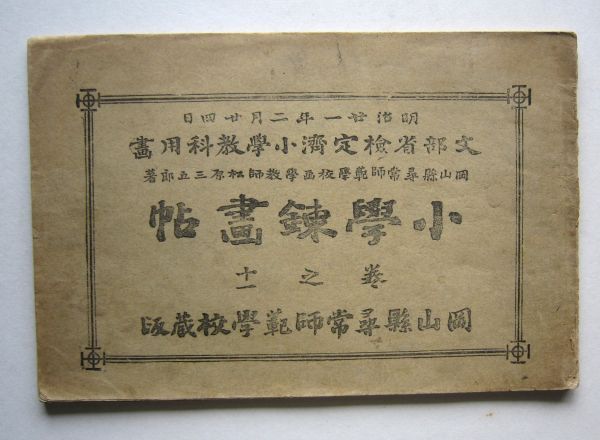 明治廿一年二月廿四日
文部省檢定濟小學教科用畫
岡山縣尋常師範學校画學教師松原三五郎著
小學鍊畫帖
卷之十一
岡山縣尋常師範學校蔵版